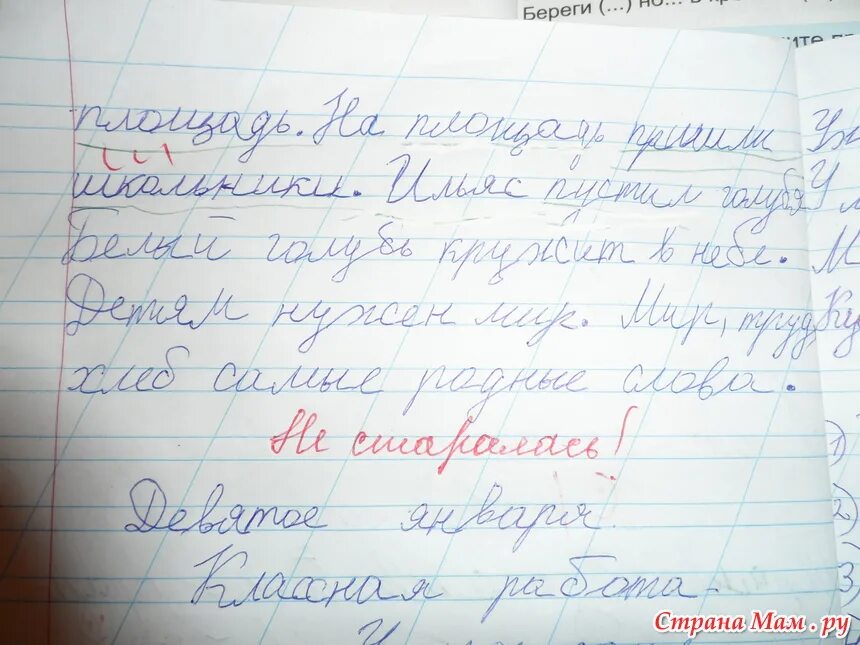 Береги (...) но...
площадь. На площадь пришли
школьники. Ильяс пустил голубя
Белый голубь кружит в небе.
Детям нужен мир. Мир, труд
хлеб самые родные слова.
Не старалась!
Девятое января.
Классная работа.
1)
2)
3)
Страна Мам.ру